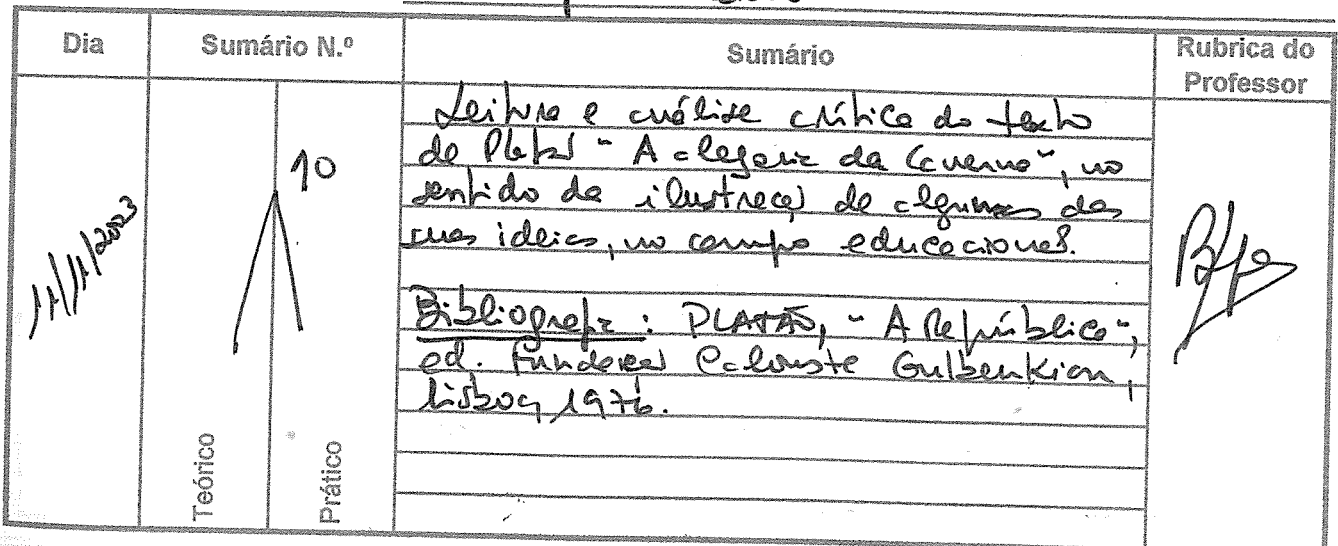 Dia
Sumário N.º
Sumário
Rubrica do
Professor
11/11/2023
10
Teórico
Prático
Leitura e análise crítica do texto
de Platão "A alegoria da Caverna", no
sentido da ilustração de algumas das
suas ideias, no campo educacional.
Bibliografia: PLATÃO, "A República",
ed. Fundação Calouste Gulbenkian,
Lisboa, 1976.